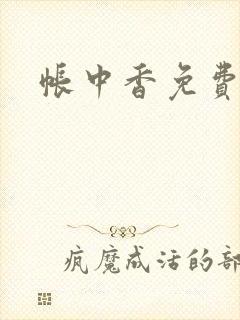 帐中香免費
疯魔成活的部